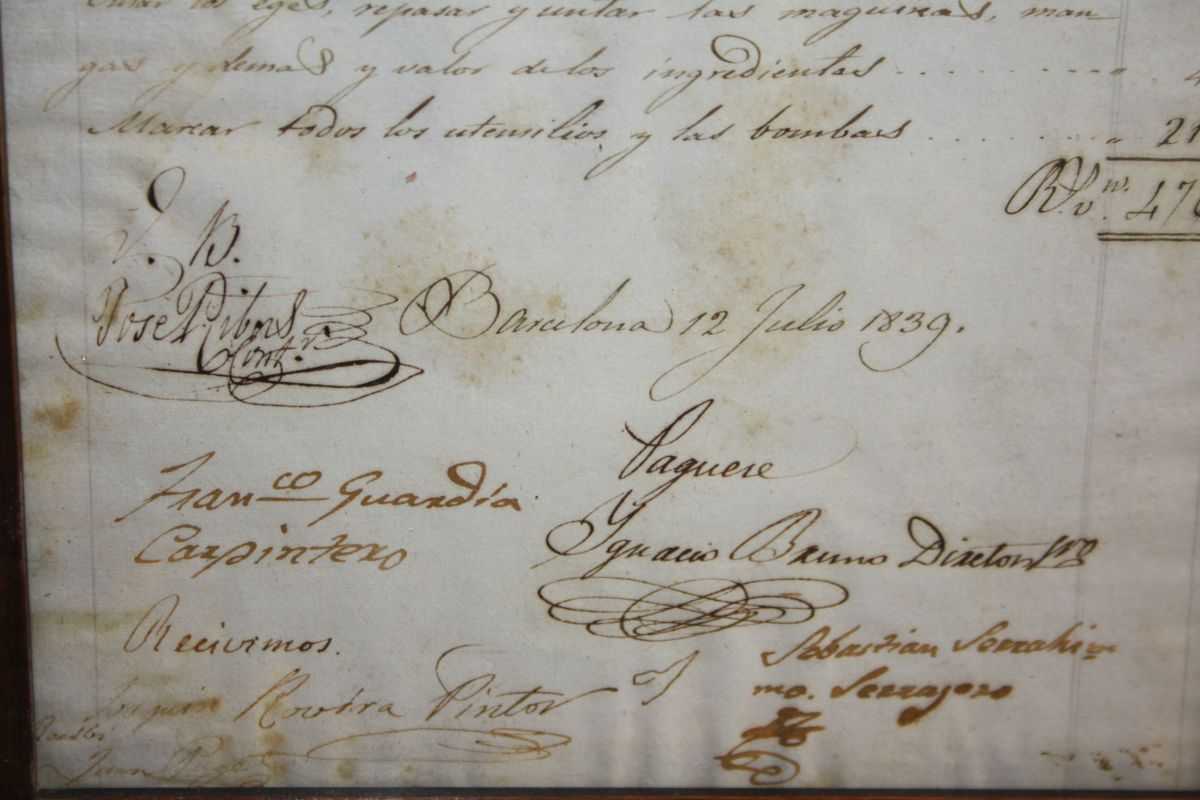 los eges, repasar y untar las maquinas, man-
gas y demas y valor de los ingredientes
Marcar todos los utensilios y las bombas " 21
R.s v.n 476
V. B.
José Ribas
Cont.r
Barcelona 12 Julio 1839.
Paguese
Fran.co Guardia
Carpintero
Ygnacio Bruno Diretor
Recivimos.
Sebastian Serrahi
mo. Serrajero
Rovira Pintor y
Juan